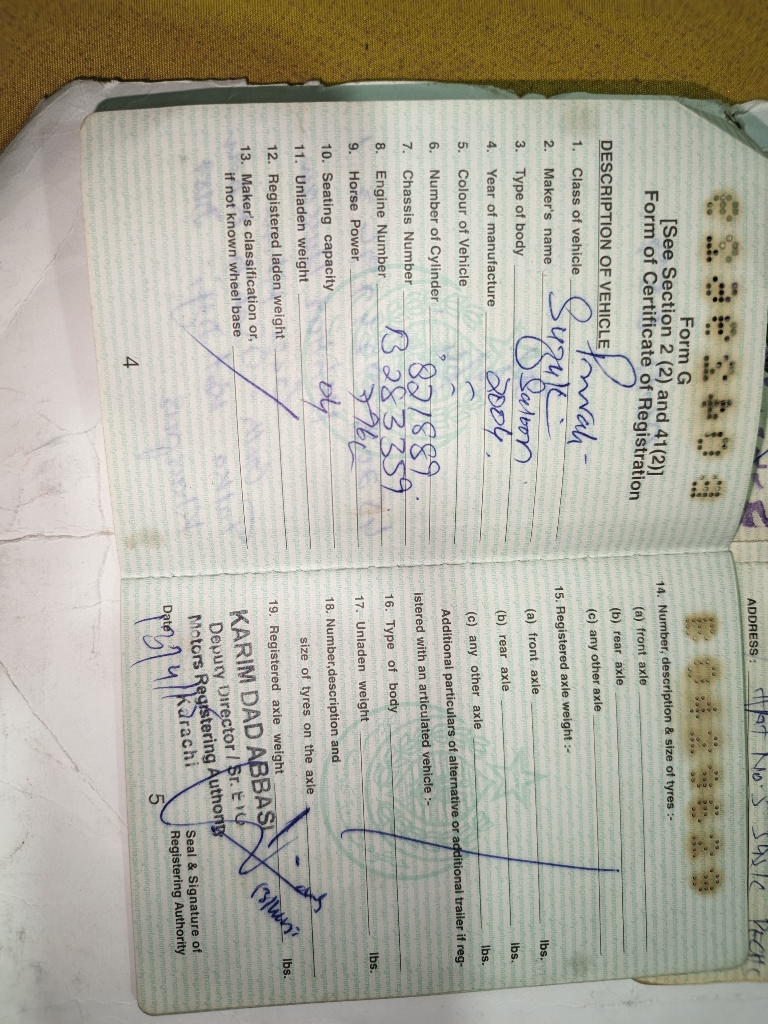 Form G
[See Section 2 (2) and 41(2)]
Form of Certificate of Registration
DESCRIPTION OF VEHICLE
1. Class of vehicle
2. Maker's name Suzuki
3. Type of body Saloon
4. Year of manufacture 2004
5. Colour of Vehicle
6. Number of Cylinder
7. Chassis Number 821889
8. Engine Number B 283359
9. Horse Power 796cc
10. Seating capacity 04
11. Unladen weight
12. Registered laden weight
13. Maker's classification or,
if not known wheel base
4
ADDRESS:
14. Number, description & size of tyres :-
(a) front axle
(b) rear axle
(c) any other axle
15. Registered axle weight :-
(a) front axle lbs.
(b) rear axle lbs.
(c) any other axle lbs.
Additional particulars of alternative or additional trailer if reg-
istered with an articulated vehicle :-
16. Type of body
17. Unladen weight lbs.
18. Number,description and
size of tyres on the axle
19. Registered axle weight lbs.
KARIM DAD ABBASI
Deputy Director / Sr. ETO
Motors Registering Authority
Karachi
Date
Seal & Signature of
Registering Authority
5